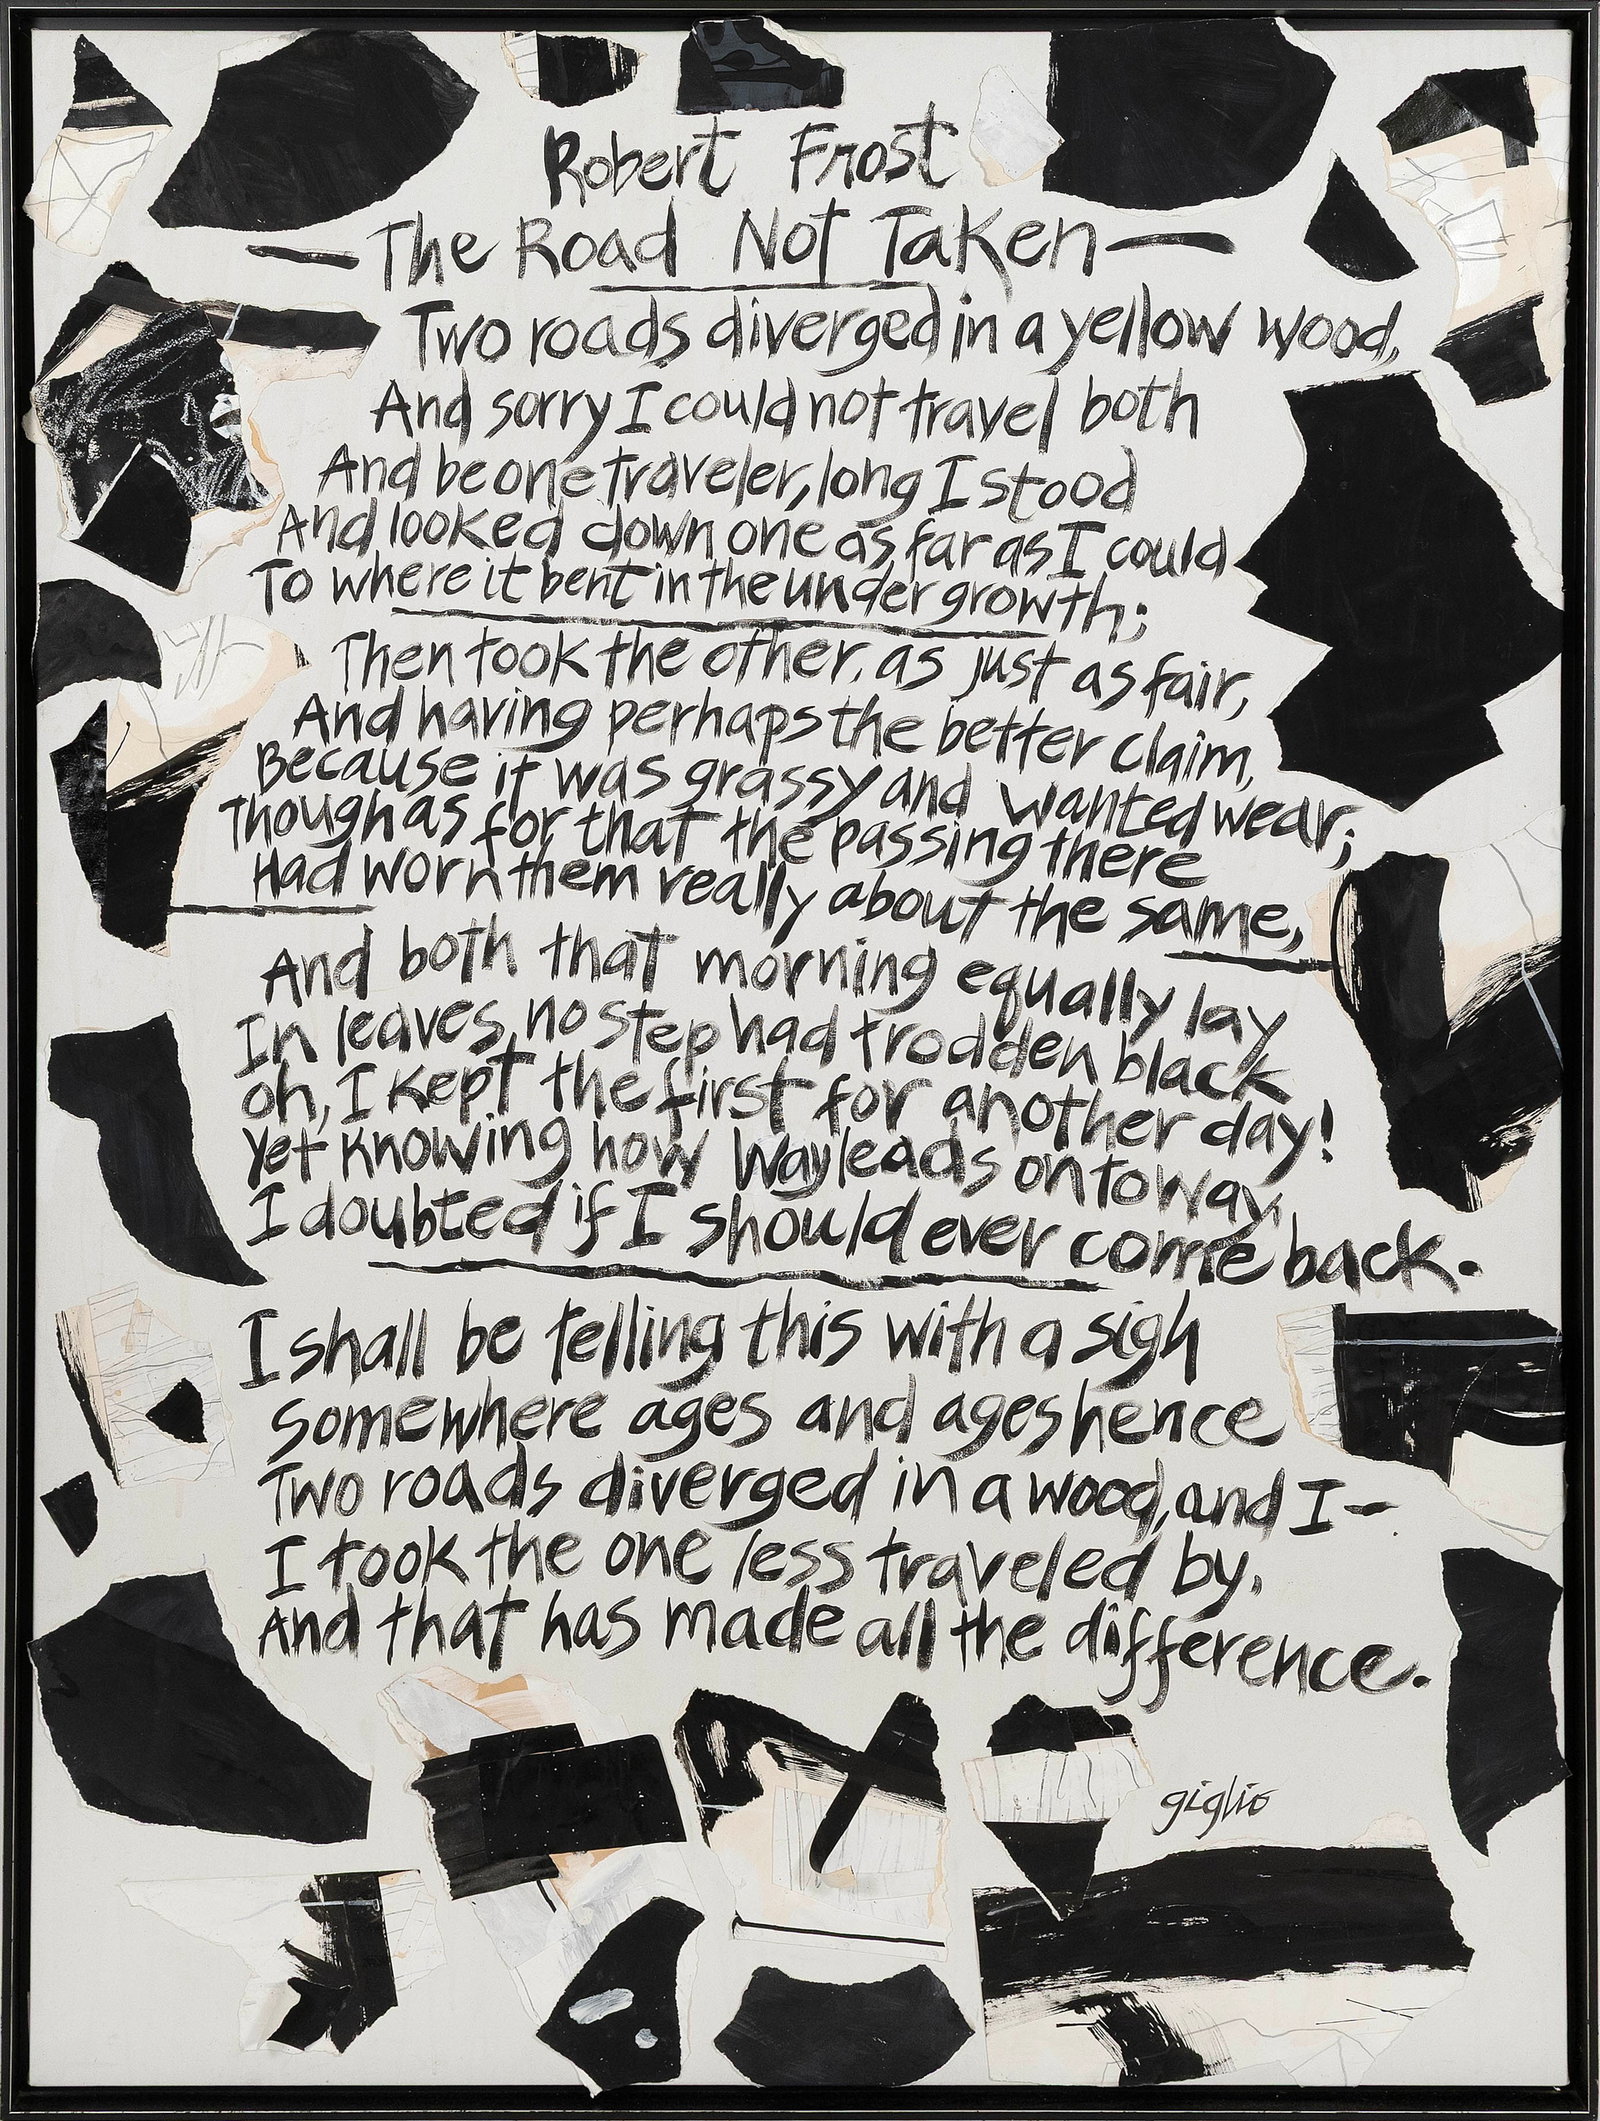 Robert Frost
— The Road Not Taken —
Two roads diverged in a yellow wood,
And sorry I could not travel both
And be one traveler, long I stood
And looked down one as far as I could
To where it bent in the undergrowth;
Then took the other, as just as fair,
And having perhaps the better claim,
Because it was grassy and wanted wear;
Though as for that the passing there
Had worn them really about the same,
And both that morning equally lay
In leaves no step had trodden black
Oh, I kept the first for another day!
Yet knowing how way leads on to way,
I doubted if I should ever come back.
I shall be telling this with a sigh
Somewhere ages and ages hence
Two roads diverged in a wood, and I—
I took the one less traveled by,
And that has made all the difference.
giglio